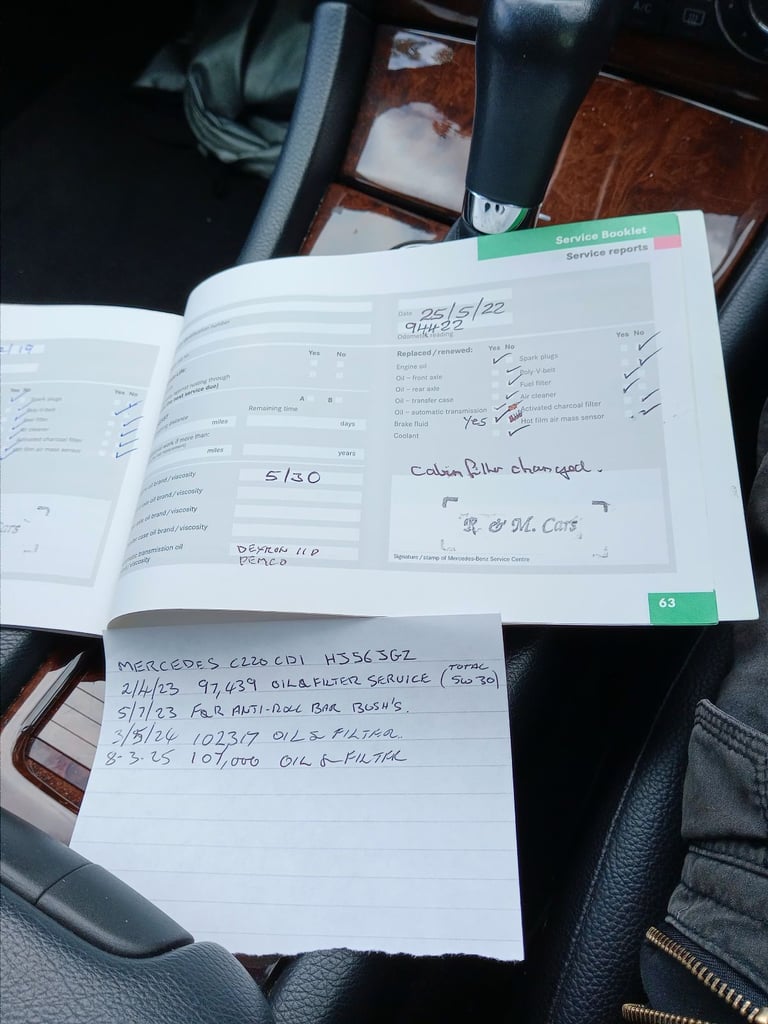 A/C
Service Booklet
Service reports
2/19
Yes No
Yes No
Spark plugs
Poly-V-belt
Fuel filter
Air cleaner
Activated charcoal filter
film air mass sensor
Cars
Yes No
next service due)
A B
Remaining time
miles
days
work, if more than:
miles
years
oil brand/viscosity
5/30
oil brand/viscosity
oil brand/viscosity
case oil brand/viscosity
transmission oil
viscosity
DEXRON 11D
PEMCO
Date 25/5/22
94422
Odometer reading
Replaced / renewed: Yes No
Yes No
Engine oil
Oil – front axle
Oil – rear axle
Oil – transfer case
Oil – automatic transmission
Brake fluid Yes
Coolant
Spark plugs
Poly-V-belt
Fuel filter
Air cleaner
Activated charcoal filter
Hot film air mass sensor
Cabin filter changed.
R & M. Cars
Signature / stamp of Mercedes-Benz Service Centre
63
MERCEDES C220 CDI HJ56JGZ
2/4/23 97,439 OIL & FILTER SERVICE (TOTAL 5W30)
5/7/23 F&R ANTI-ROLL BAR BUSH'S.
3/5/24 102317 OIL & FILTER.
8-3-25 107,000 OIL & FILTER